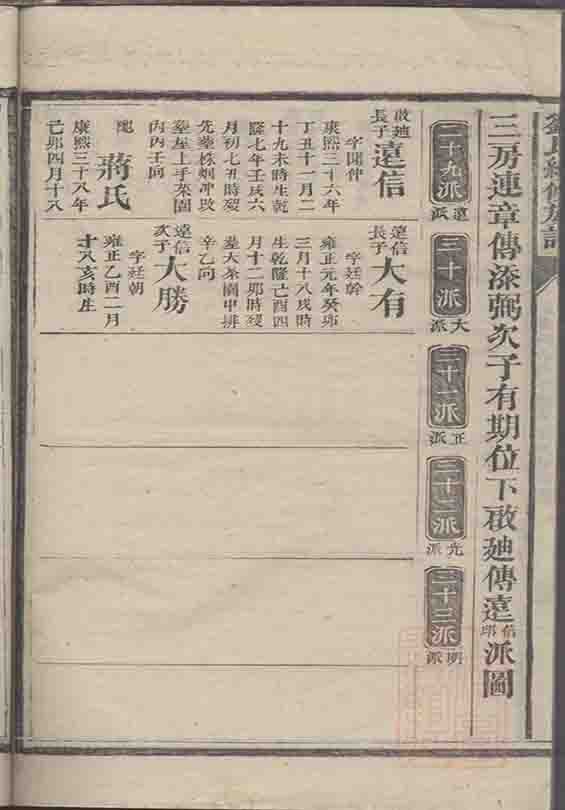 劉氏續修族譜
三房連章傳添弼次子有期位下啟廸傳遠信郢派圖
二十九派 遠派
三十派 大派
三十一派 正派
三十二派 光派
三十三派 明派
啟廸長子遠信
字開仲
康熙三十六年
丁丑十一月二
十九未時生乾
隆七年壬戌六
月初七丑時歿
先塟株烟冲改
塟屋上手菜園
內丙壬向
配 蔣氏
康熙三十八年
己卯四月十八
遠信長子大有
字廷幹
雍正元年癸卯
三月十八戌時
生乾隆己酉四
月十二卯時歿
塟大茶園中排
辛乙向
遠信次子大勝
字廷朝
雍正乙酉二月
十八亥時生